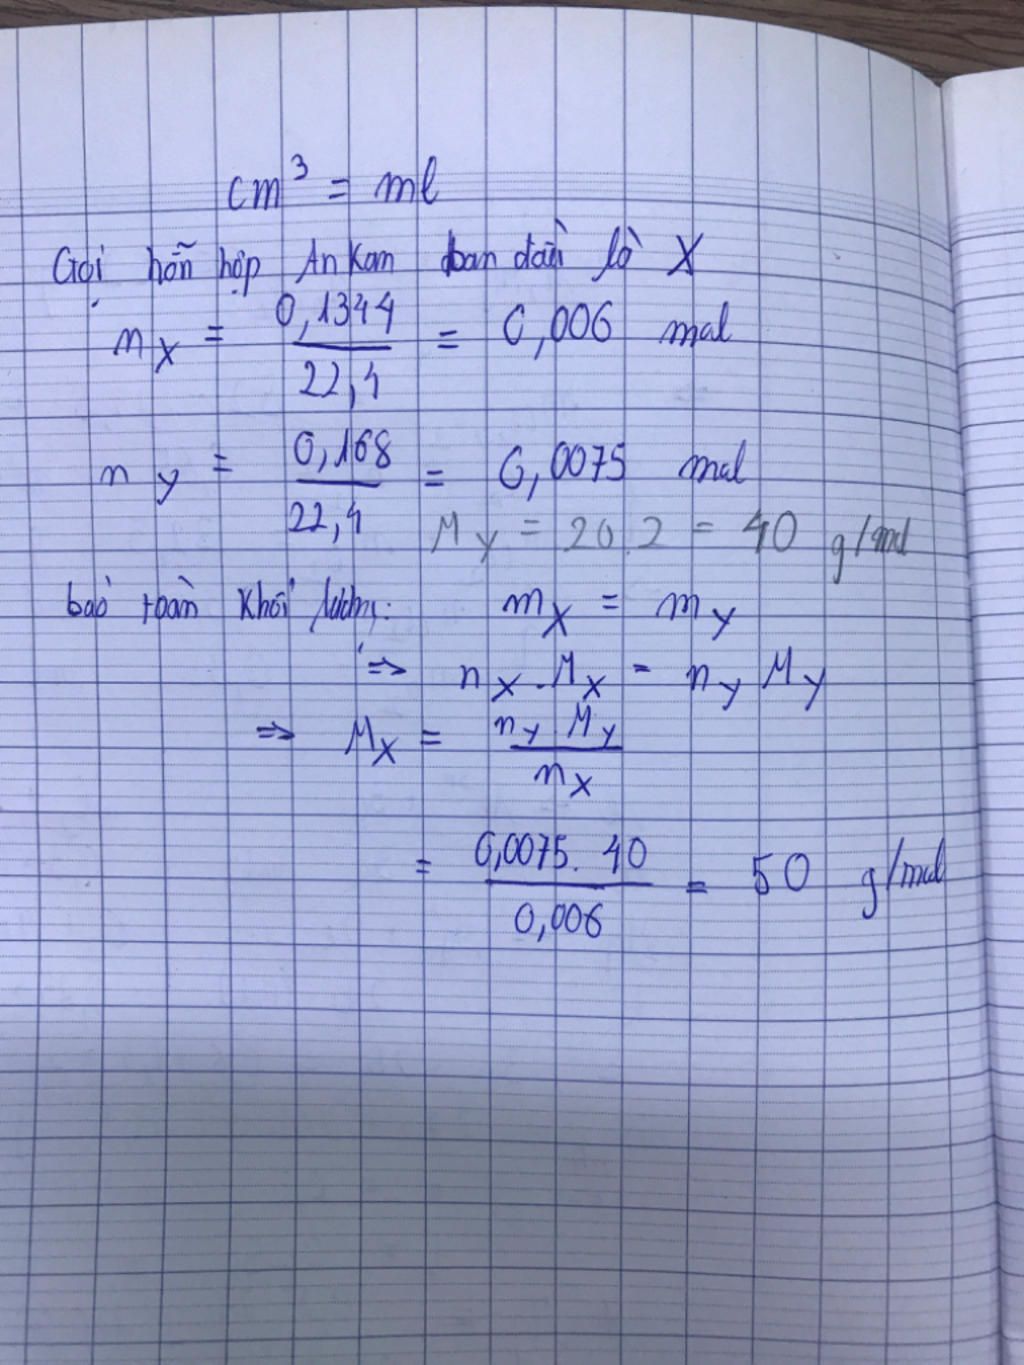 cm³ = ml
Gọi hỗn hợp Ankan ban đầu là X
n_X = 0,1344 / 22,4 = 0,006 mol
n_Y = 0,168 / 22,4 = 0,0075 mol
M_Y = 20.2 = 40 g/mol
bảo toàn khối lượng: m_X = m_Y
=> n_X . M_X = n_Y M_Y
=> M_X = n_Y M_Y / n_X
= 0,0075 . 40 / 0,006 = 50 g/mol